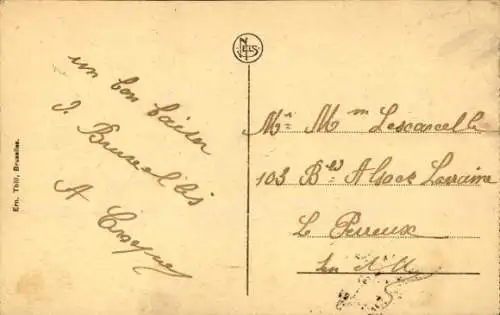 un bon baiser
d. Bruxelles
A
NELS
Ern. Thill, Bruxelles.
Mr Mme Lescarcelle
103 Bld Alsace Lorraine
Le Perreux